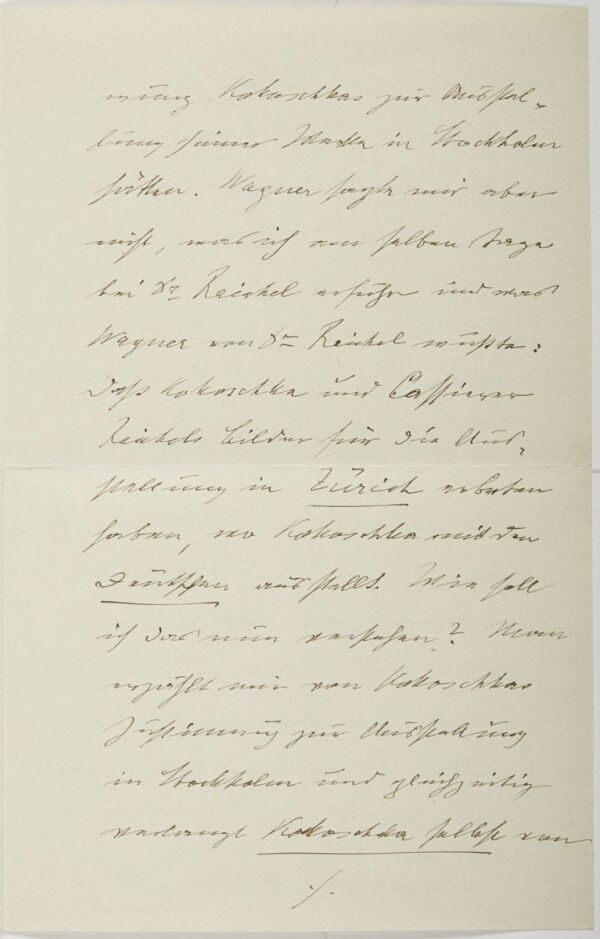 mung Kokoschkas zur Ausstel-
lung seiner Werke in Stockholm
hätten. Wagner sagte mir aber
nicht, was ich am selben Tage
bei Dr. Reichel erfuhr und was
Wagner von Dr. Reichel wußte:
daß Kokoschka und Cassierer
Reichels Bilder für die Aus-
stellung in Zürich erbeten
haben, wo Kokoschka mit den
Deutschen ausstellt. Wie soll
ich das nun verstehen? Man
erzählt mir von Kokoschkas
Zustimmung zur Ausstellung
in Stockholm und gleichzeitig
verlangt Kokoschka selbst von
./.